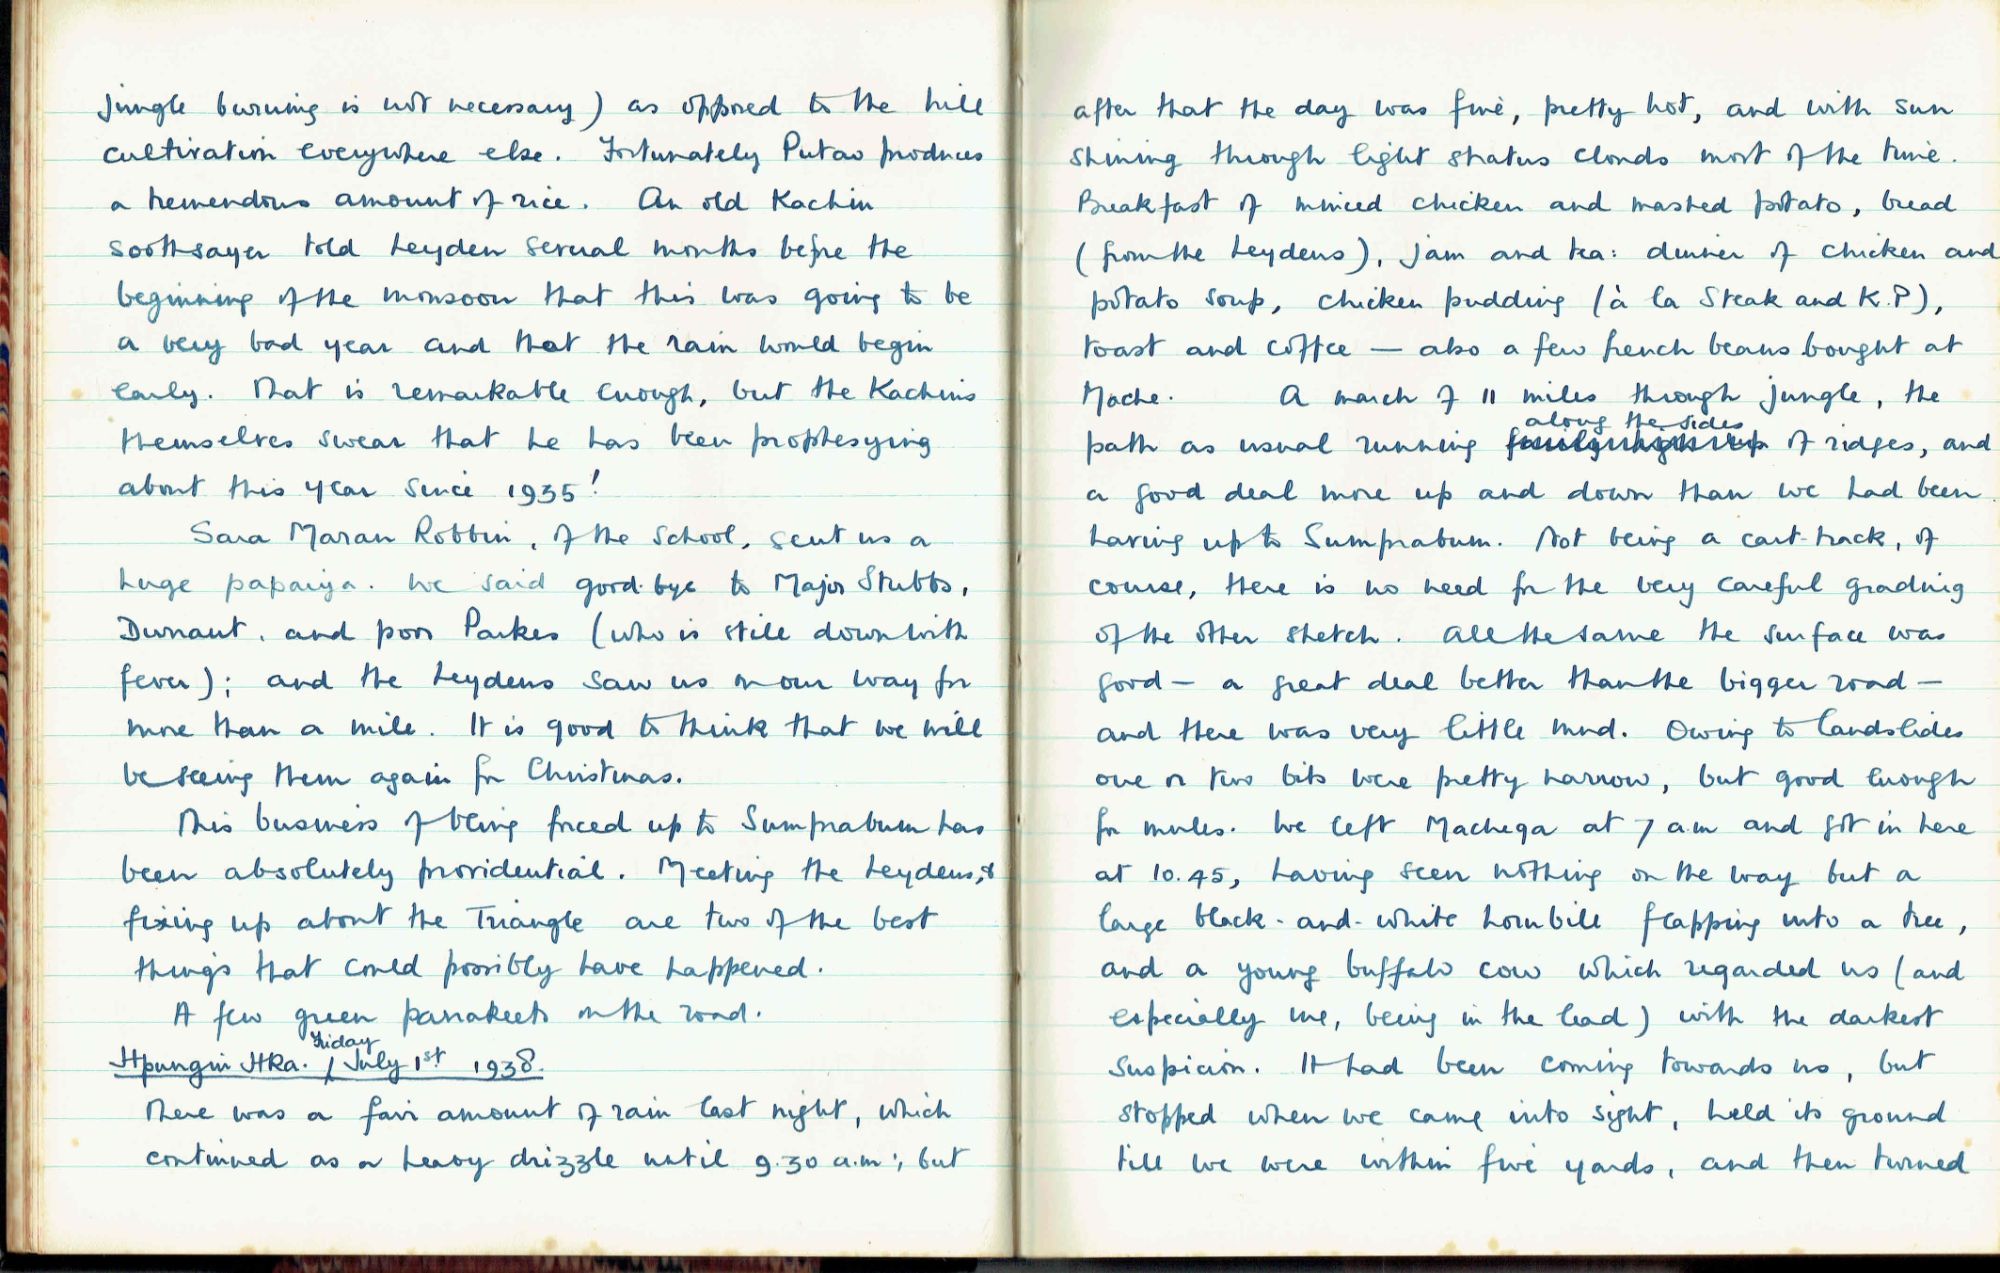 jungle burning is not necessary) as opposed to the hill
cultivation everywhere else. Fortunately Putao produces
a tremendous amount of rice. An old Kachin
soothsayer told Leyden several months before the
beginning of the monsoon that this was going to be
a very bad year and that the rain would begin
early. That is remarkable enough, but the Kachins
themselves swear that he has been prophesying
about this year since 1935!
Sara Maran Robbin, of the School, sent us a
huge papaiya. We said good-bye to Major Stubbs,
Durrant, and poor Parkes (who is still down with
fever); and the Leydens saw us on our way for
more than a mile. It is good to think that we will
be seeing them again for Christmas.
This business of being forced up to Sumprabum has
been absolutely providential. Meeting the Leydens, &
fixing up about the Triangle are two of the best
things that could possibly have happened.
A few green parrakeets on the road.
Friday
Hpungin Hka. / July 1st 1938.
There was a fair amount of rain last night, which
continued as a heavy drizzle until 9.30 a.m.; but
after that the day was fine, pretty hot, and with sun
shining through light stratus clouds most of the time.
Breakfast of minced chicken and mashed potato, bread
(from the Leydens), jam and tea: dinner of chicken and
potato soup, chicken pudding (à la Steak and K.P),
toast and coffee — also a few french beans bought at
Mache. A march of 11 miles through jungle, the
along the sides
path as usual running of ridges, and
a good deal more up and down than we had been
having up to Sumprabum. Not being a cart-track, of
course, there is no need for the very careful grading
of the other stretch. All the same the surface was
good — a great deal better than the bigger road —
and there was very little mud. Owing to landslides
one or two bits were pretty narrow, but good enough
for mules. We left Machega at 7 a.m and got in here
at 10.45, having seen nothing on the way but a
large black-and-white hornbill flapping into a tree,
and a young buffalo cow which regarded us (and
especially me, being in the lead) with the darkest
suspicion. It had been coming towards us, but
stopped when we came into sight, held its ground
till we were within five yards, and then turned